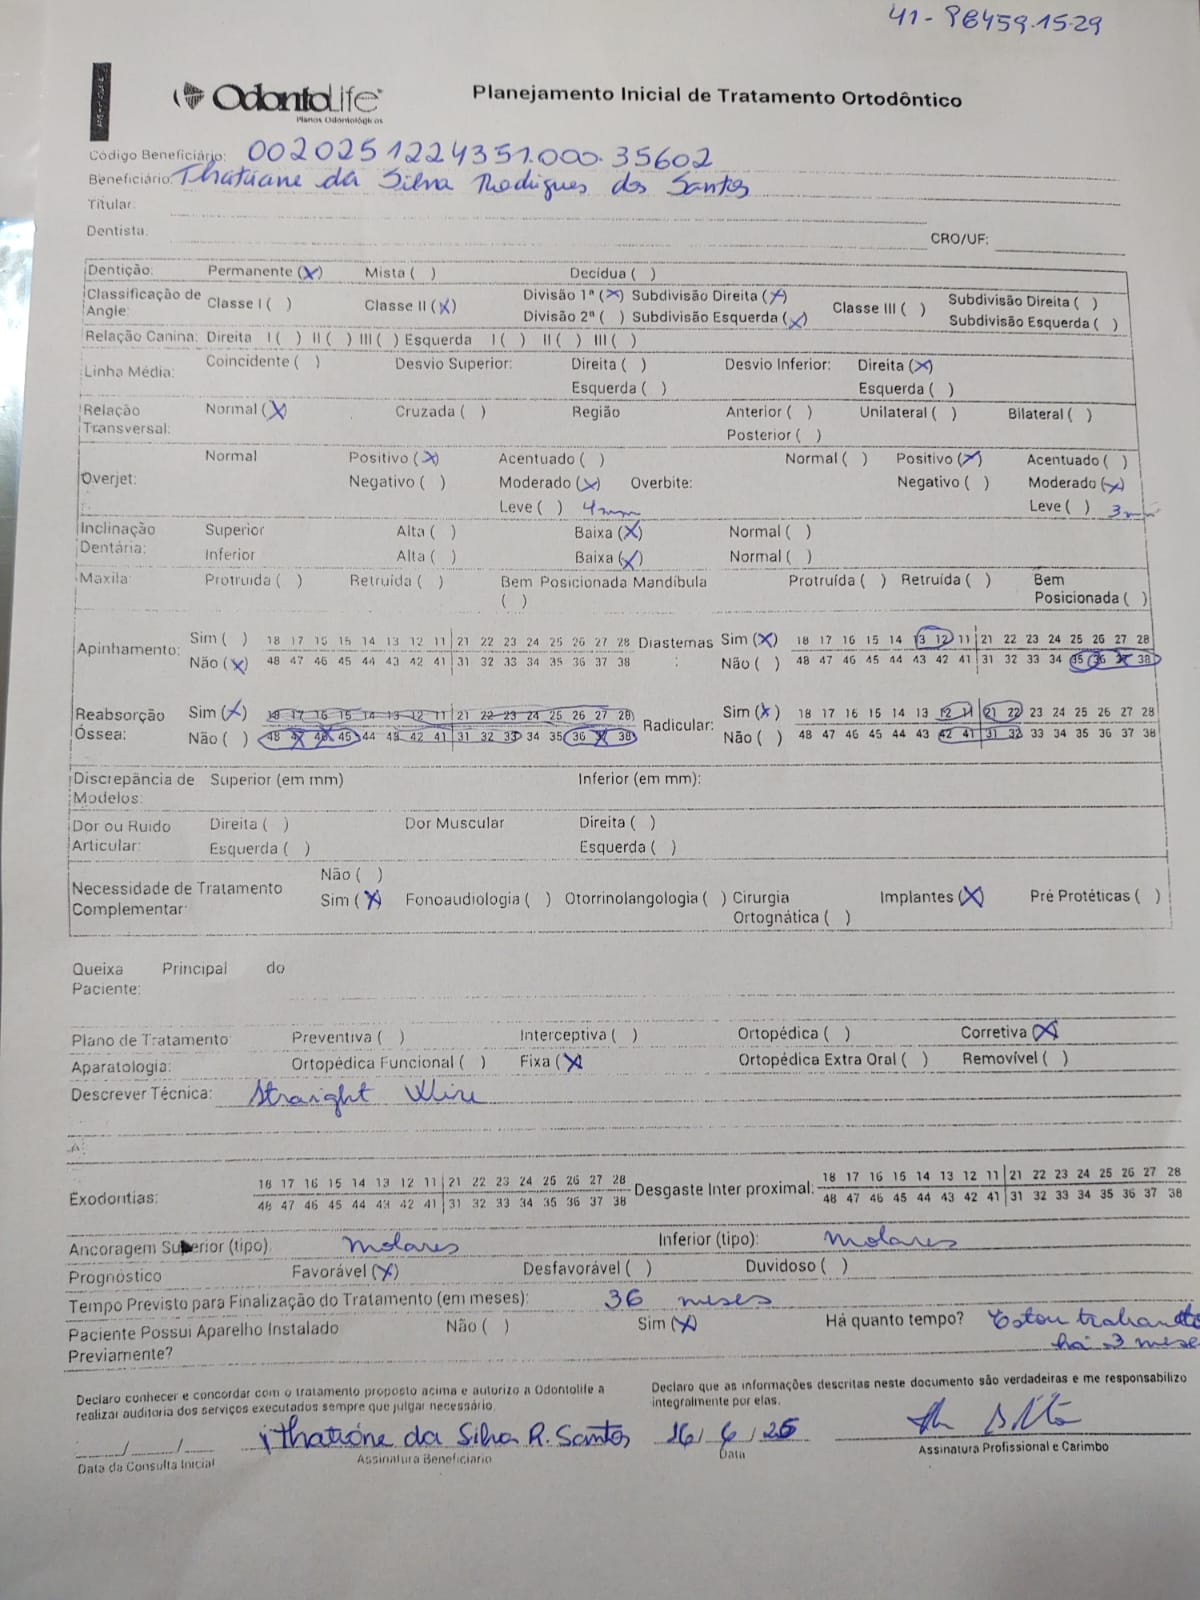 41-98459.15.29
OdontoLife
Planos Odontológicos
Planejamento Inicial de Tratamento Ortodôntico
Código Beneficiário: 0020251224351.000.35602
Beneficiário: Thatiane da Silva Rodrigues dos Santos
Titular:
Dentista: CRO/UF:
Dentição: Permanente (X) Mista ( ) Decídua ( )
Classificação de Angle: Classe I ( ) Classe II (X) Divisão 1ª (X) Subdivisão Direita (X) Classe III ( ) Subdivisão Direita ( )
Divisão 2ª ( ) Subdivisão Esquerda (X) Subdivisão Esquerda ( )
Relação Canina: Direita I ( ) II ( ) III ( ) Esquerda I ( ) II ( ) III ( )
Linha Média: Coincidente ( ) Desvio Superior: Direita ( ) Desvio Inferior: Direita (X)
Esquerda ( ) Esquerda ( )
Relação Transversal: Normal (X) Cruzada ( ) Região Anterior ( ) Unilateral ( ) Bilateral ( )
Posterior ( )
Normal Positivo (X) Acentuado ( ) Normal ( ) Positivo (X) Acentuado ( )
Overjet: Negativo ( ) Moderado (X) Overbite: Negativo ( ) Moderado (X)
Leve ( ) 4mm Leve ( ) 3mm
Inclinação Superior Alta ( ) Baixa (X) Normal ( )
Dentária: Inferior Alta ( ) Baixa (X) Normal ( )
Maxila: Protruída ( ) Retruída ( ) Bem Posicionada Mandíbula Protruída ( ) Retruída ( ) Bem
( ) Posicionada ( )
Apinhamento: Sim ( ) 18 17 16 15 14 13 12 11 21 22 23 24 25 26 27 28 Diastemas Sim (X) 18 17 16 15 14 13 12 11 21 22 23 24 25 26 27 28
Não (X) 48 47 46 45 44 43 42 41 31 32 33 34 35 36 37 38 : Não ( ) 48 47 46 45 44 43 42 41 31 32 33 34 35 36 37 38
Reabsorção Sim (X) 18 17 16 15 14 13 12 11 21 22 23 24 25 26 27 28 Radicular: Sim (X) 18 17 16 15 14 13 12 11 21 22 23 24 25 26 27 28
Óssea: Não ( ) 48 47 46 45 44 43 42 41 31 32 33 34 35 36 37 38 Não ( ) 48 47 46 45 44 43 42 41 31 32 33 34 35 36 37 38
Discrepância de Superior (em mm) Inferior (em mm):
Modelos:
Dor ou Ruido Direita ( ) Dor Muscular Direita ( )
Articular: Esquerda ( ) Esquerda ( )
Não ( )
Necessidade de Tratamento Sim (X) Fonoaudiologia ( ) Otorrinolangologia ( ) Cirurgia Implantes (X) Pré Protéticas ( )
Complementar: Ortognática ( )
Queixa Principal do
Paciente:
Plano de Tratamento Preventiva ( ) Interceptiva ( ) Ortopédica ( ) Corretiva (X)
Aparatologia: Ortopédica Funcional ( ) Fixa (X) Ortopédica Extra Oral ( ) Removível ( )
Descrever Técnica: Straight Wire
Exodontias: 18 17 16 15 14 13 12 11 21 22 23 24 25 26 27 28 Desgaste Inter proximal: 18 17 16 15 14 13 12 11 21 22 23 24 25 26 27 28
48 47 46 45 44 43 42 41 31 32 33 34 35 36 37 38 48 47 46 45 44 43 42 41 31 32 33 34 35 36 37 38
Ancoragem Superior (tipo) molares Inferior (tipo): molares
Prognóstico Favorável (X) Desfavorável ( ) Duvidoso ( )
Tempo Previsto para Finalização do Tratamento (em meses): 36 meses
Paciente Possui Aparelho Instalado Não ( ) Sim (X) Há quanto tempo? Estou
Previamente? há 3 mese
Declaro conhecer e concordar com o tratamento proposto acima e autorizo a Odontolife a
realizar auditoria dos serviços executados sempre que julgar necessário.
Declaro que as informações descritas neste documento são verdadeiras e me responsabilizo
integralmente por elas.
__/__/__ Thatiane da Silva R. Santos 16/6/25
Data da Consulta Inicial Assinatura Beneficiário Data Assinatura Profissional e Carimbo